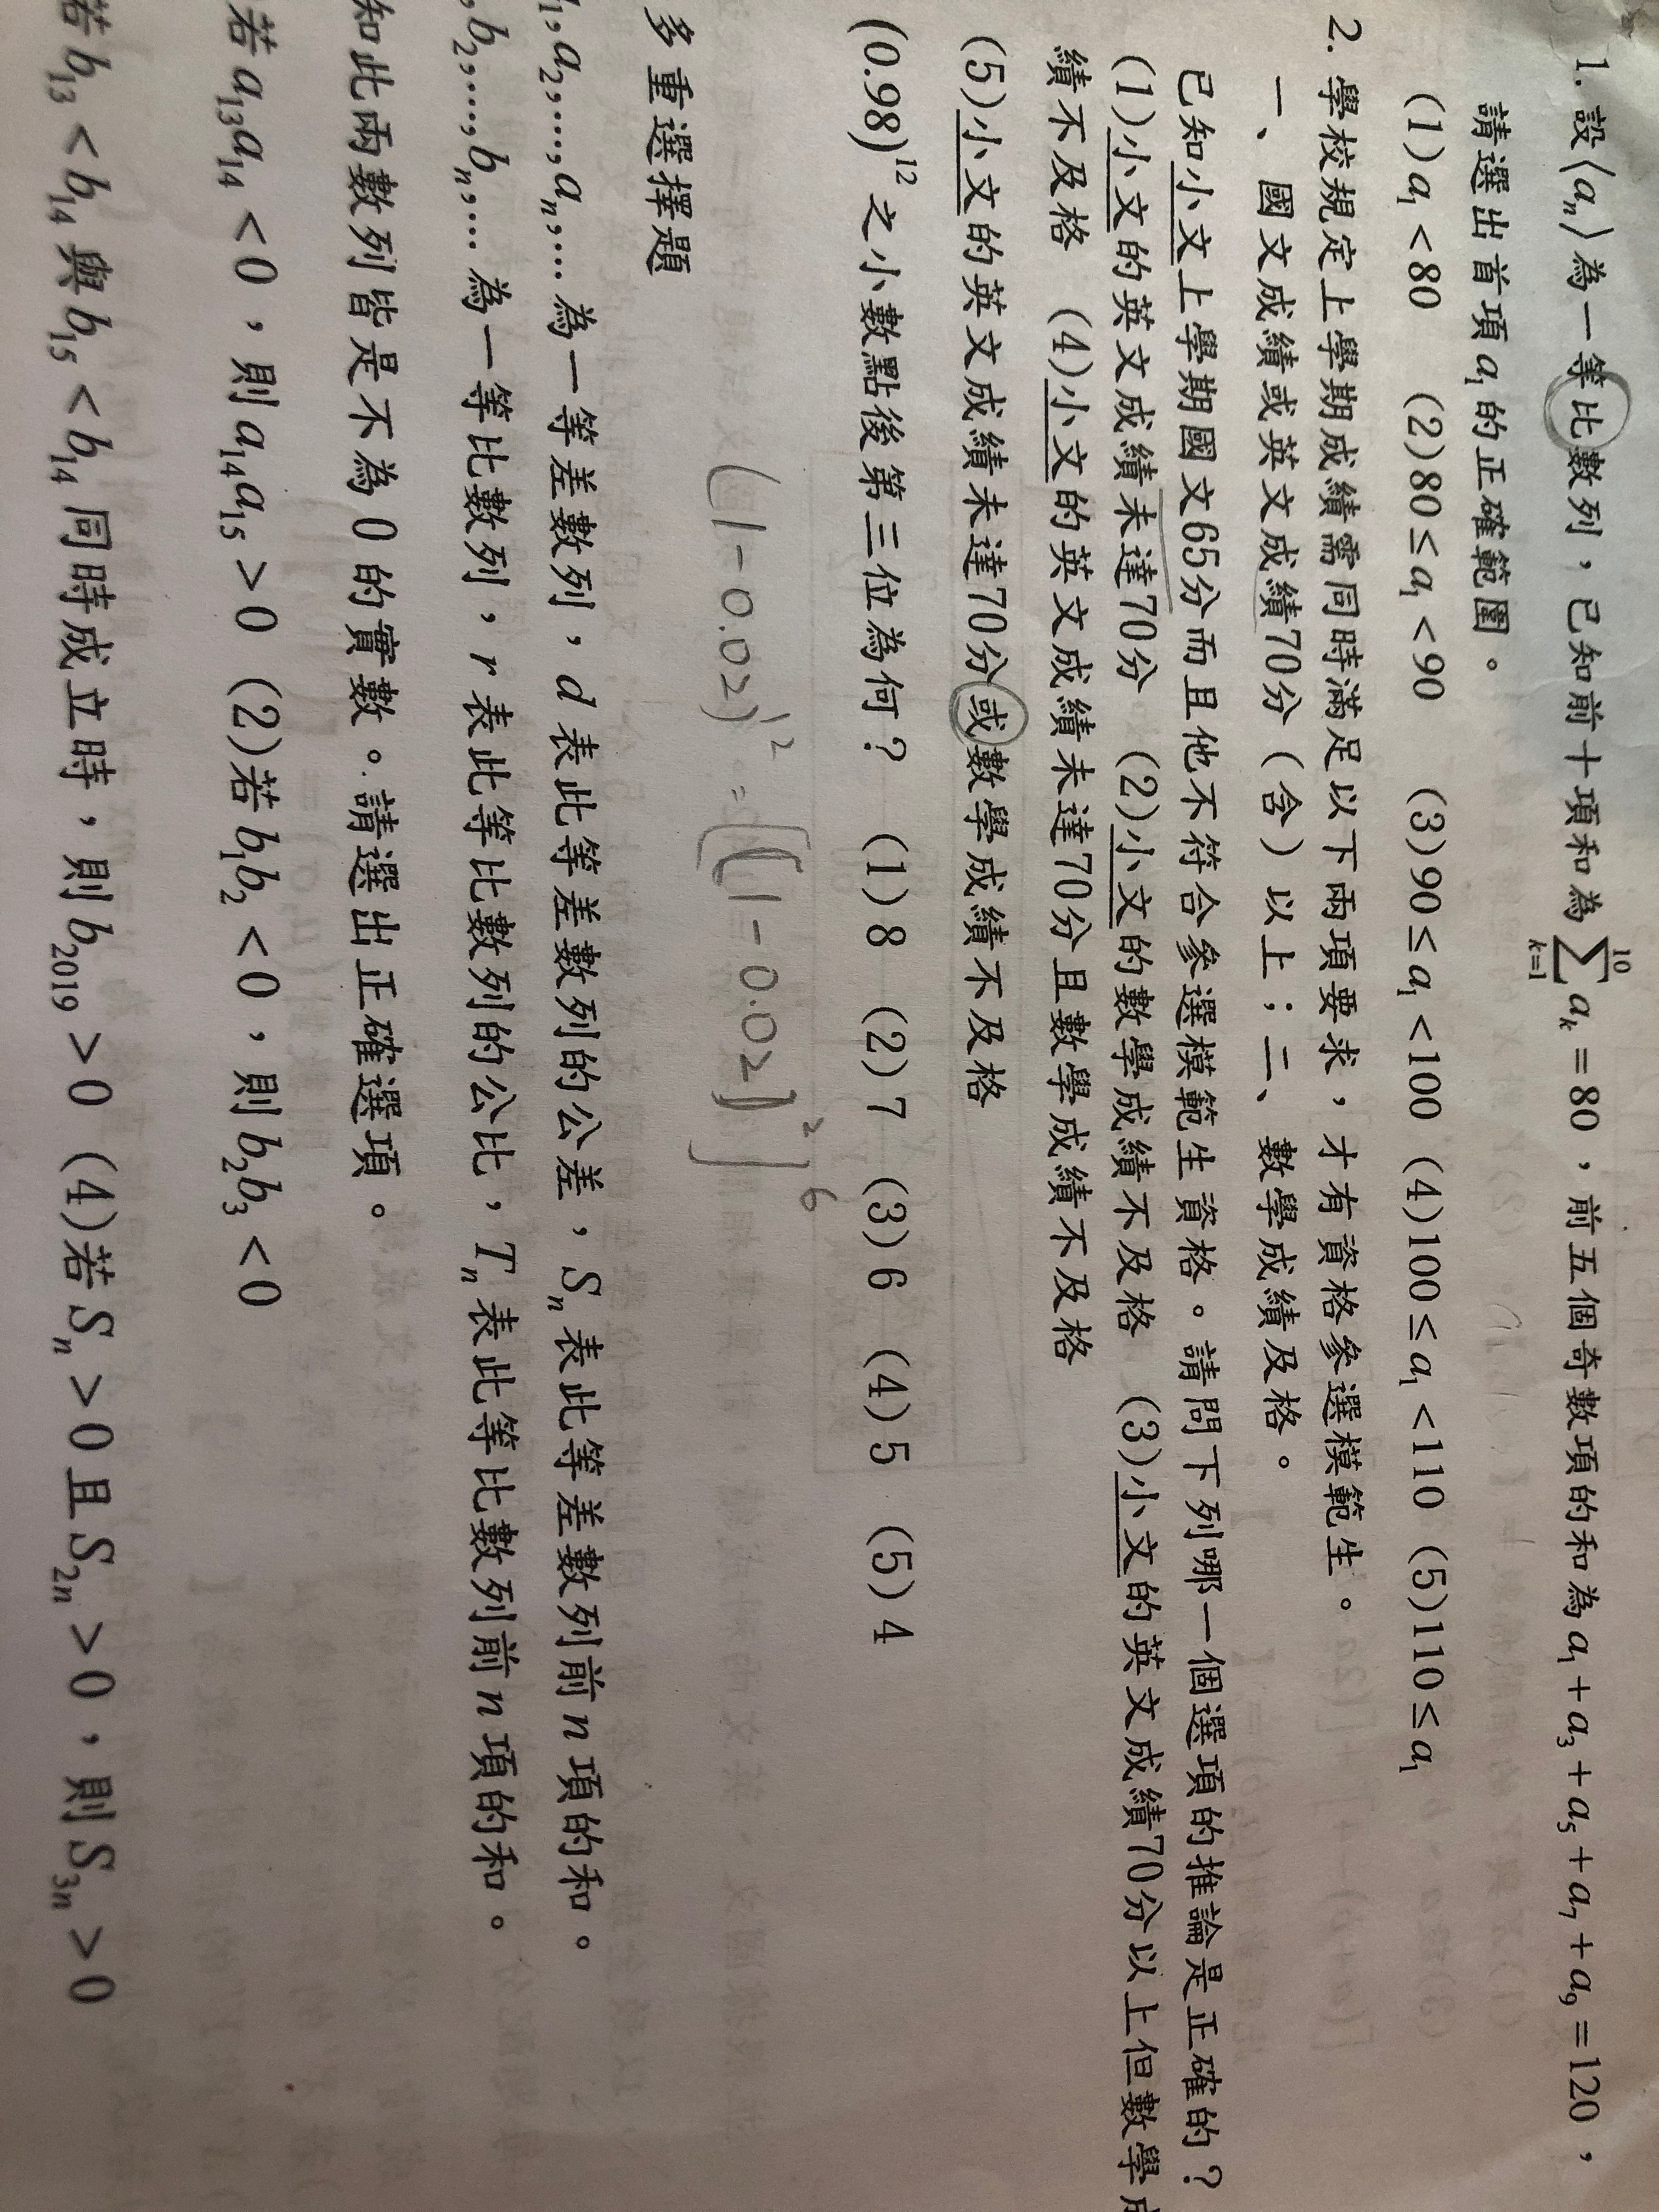 1. 設⟨aₙ⟩為一等比數列，已知前十項和為 ∑_{k=1}^{10} aₖ = 80，前五個奇數項的和為 a₁ + a₃ + a₅ + a₇ + a₉ = 120，
請選出首項 a₁ 的正確範圍。
(1) a₁ < 80 (2) 80 ≤ a₁ < 90 (3) 90 ≤ a₁ < 100 (4) 100 ≤ a₁ < 110 (5) 110 ≤ a₁
2. 學校規定上學期成績需同時滿足以下兩項要求，才有資格參選模範生。
一、國文成績或英文成績70分（含）以上；二、數學成績及格。
已知小文上學期國文65分而且他不符合參選模範生資格。請問下列哪一個選項的推論是正確的？
(1)小文的英文成績未達70分 (2)小文的數學成績不及格 (3)小文的英文成績70分以上但數學成
績不及格 (4)小文的英文成績未達70分且數學成績不及格
(5)小文的英文成績未達70分或數學成績不及格
(0.98)¹² 之小數點後第三位為何？ (1) 8 (2) 7 (3) 6 (4) 5 (5) 4
(1-0.02)¹² = [(1-0.02)²]⁶
多重選擇題
₁, a₂, ..., aₙ, ... 為一等差數列，d 表此等差數列的公差，Sₙ 表此等差數列前 n 項的和。
, b₂, ..., bₙ, ... 為一等比數列，r 表此等比數列的公比，Tₙ 表此等比數列前 n 項的和。
知此兩數列皆是不為 0 的實數。請選出正確選項。
若 a₁₃a₁₄ < 0，則 a₁₄a₁₅ > 0 (2)若 b₁b₂ < 0，則 b₂b₃ < 0
若 b₁₃ < b₁₄ 與 b₁₅ < b₁₄ 同時成立時，則 b₂₀₁₉ > 0 (4)若 Sₙ > 0 且 S₂ₙ > 0，則 S₃ₙ > 0